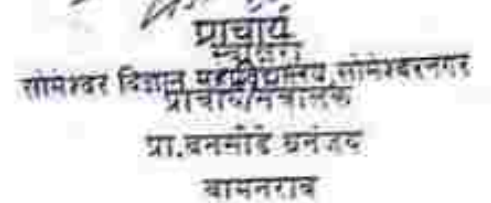 प्राचार्य
सोमेश्वर विज्ञान महाविद्यालय,सोमेश्वरनगर
प्राचार्य/संचालक
प्रा.बनसोडे धनंजय
वामनराव